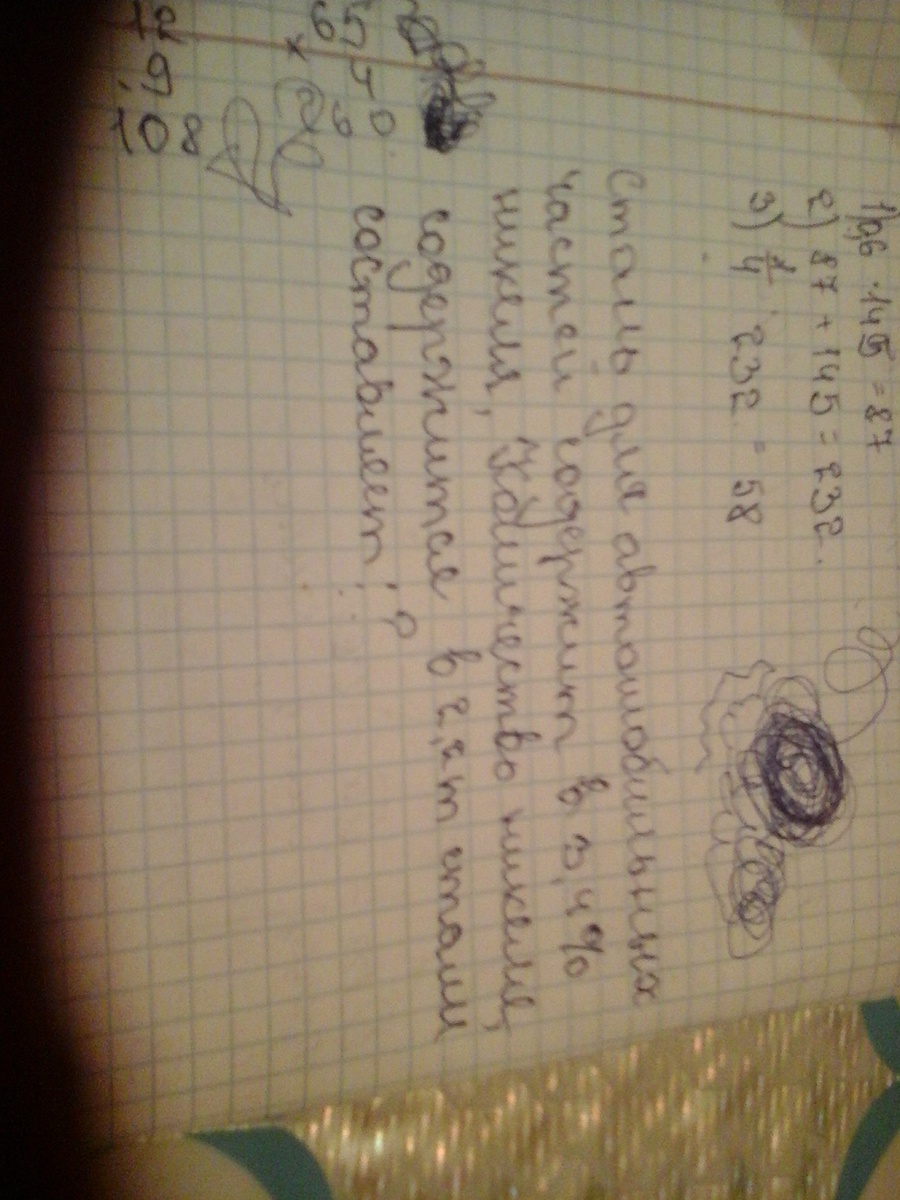 1) 0,6 · 145 = 87
2) 87 + 145 = 232.
3) 1/4 · 232 = 58
Сталь для автомобильных
частей содержит в 3,4%
никеля, Количество никеля,
содержится в 2,4т стали
составляет: ?
65
×
12
9
108